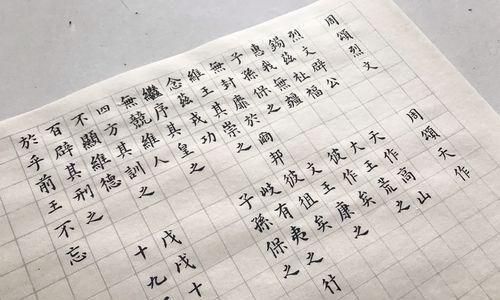 周頌烈文
烈文辟公
錫茲祉福
惠我無疆
子孫保之
無封靡於爾邦
維王其崇之
念茲戎功
繼序其皇之
無競維人
四方其訓之
不顯維德
百辟其刑之
於乎前王不忘
周頌天作
天作高山
大王荒之
彼作矣
文王康之
彼徂矣
岐有夷之行
子孫保之
戊戌十
十九